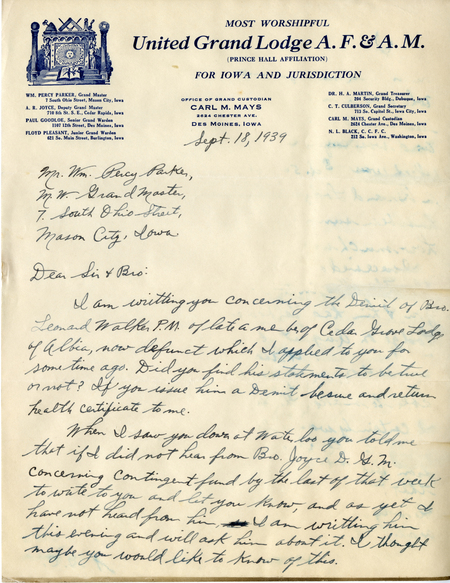 MOST WORSHIPFUL
United Grand Lodge A. F. & A. M.
(PRINCE HALL AFFILIATION)
FOR IOWA AND JURISDICTION
WM. PERCY PARKER, Grand Master
7 South Ohio Street, Mason City, Iowa
A. R. JOYCE, Deputy Grand Master
710 8th St. S. E., Cedar Rapids, Iowa
PAUL GOODLOE, Senior Grand Warden
1107 12th Street, Des Moines, Iowa
FLOYD PLEASANT, Junior Grand Warden
621 So. Main Street, Burlington, Iowa
OFFICE OF GRAND CUSTODIAN
CARL M. MAYS
2624 CHESTER AVE.
DES MOINES, IOWA
DR. H. A. MARTIN, Grand Treasurer
204 Security Bldg., Dubuque, Iowa
C. T. CULBERSON, Grand Secretary
713 So. Capitol St., Iowa City, Iowa
CARL M. MAYS, Grand Custodian
2624 Chester Ave., Des Moines, Iowa
N. L. BLACK, C. C. F. C.
212 So. Iowa Ave., Washington, Iowa
Sept. 18, 1939
Mr. Wm. Percy Parker,
M.W. Grand Master,
7. South Ohio Street,
Mason City, Iowa
Dear Sir & Bro:
I am writting you concerning the Demit of Bro.
Leonard Walker P.M. of late a member of Cedar Grove Lodge,
of Albia, now defunct which I applied to you for
some time ago. Did you find his statements to be true
or not? If you issue him a Demit be sure and return
health certificate to me.
When I saw you down at Waterloo you told me
that if I did not hear from Bro. Joyce D. G. M.
concerning Contingent fund by the last of that week
to write to you and let you know, and as yet I
have not heard from him I am writting him
this evening and will ask him about it. I thought
maybe you would like to know of this.